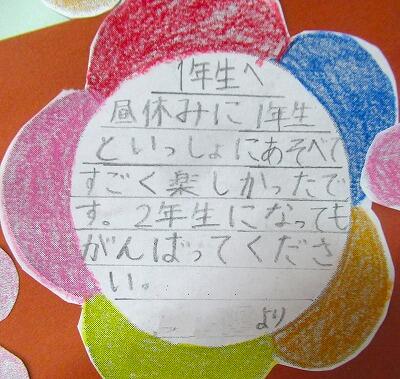 1年生へ
昼休みに1年生
といっしょにあそべて
すごく楽しかったで
す。2年生になっても
がんばってくださ
い。
より